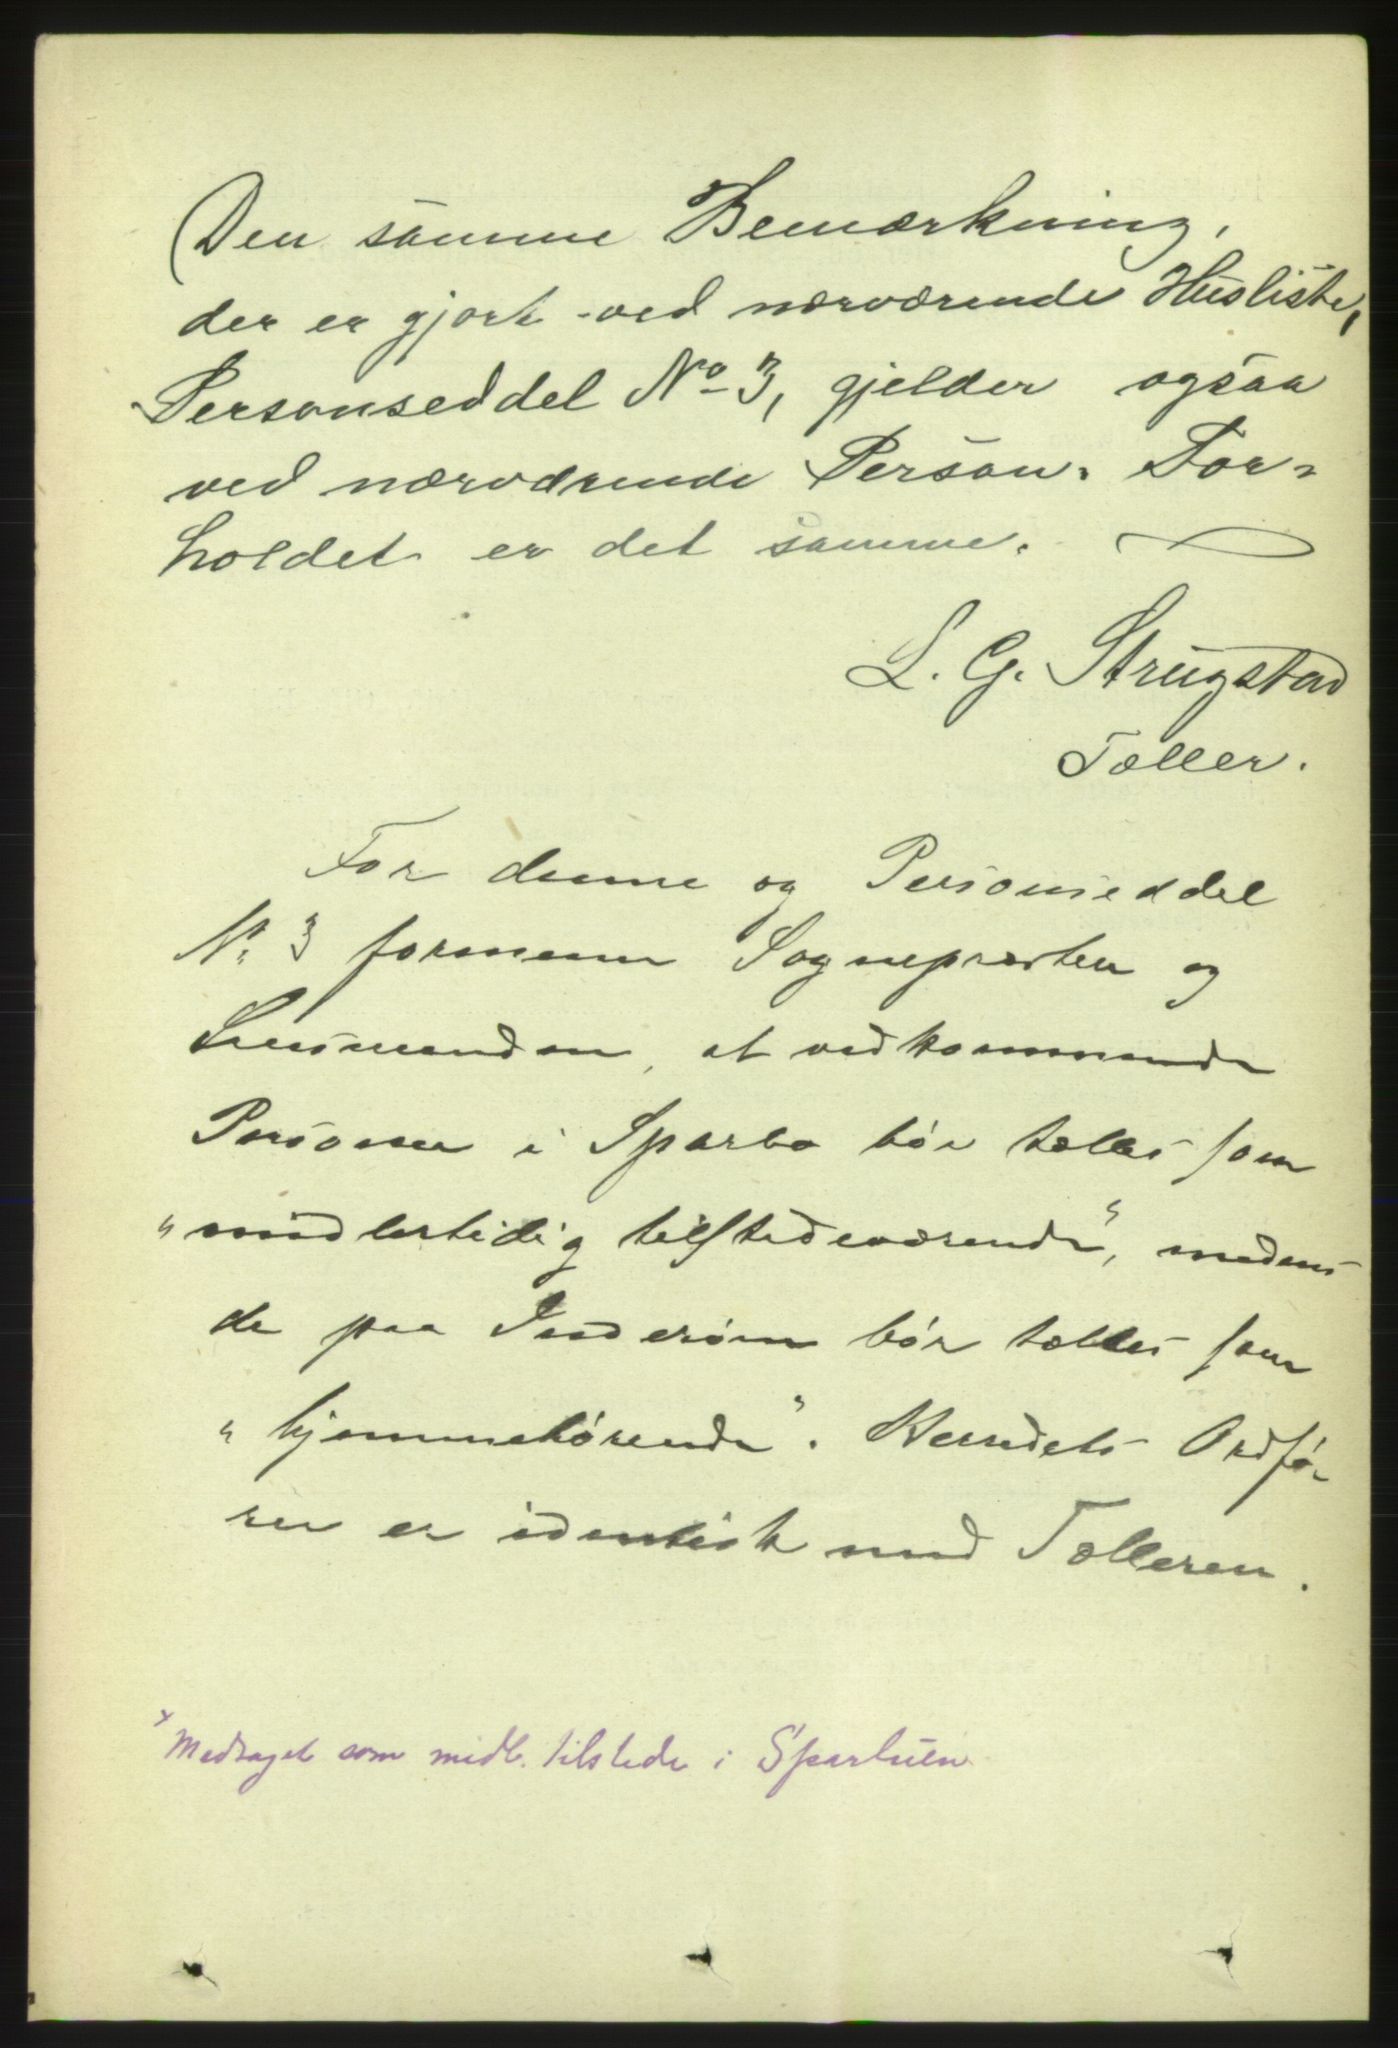 Den samme Bemærkning,
der er gjort ved nærværende Husliste,
Personseddel No 3, gjelder ogsaa
ved nærværende Person. For-
holdet er det samme.
L. G. Strugstad
Tæller.
For denne og Personseddel
No. 3 formener Sognepræsten og
Lensmanden, at vedkommende
Personer i Sparbo bør tælles som
"midlertidig tilstedeværende", medens
de paa Inderøen bør tælles som
"hjemmehørende". Herredets Ordfø-
rer er identisk med Tælleren.
x Medtaget som midl. tilstede i